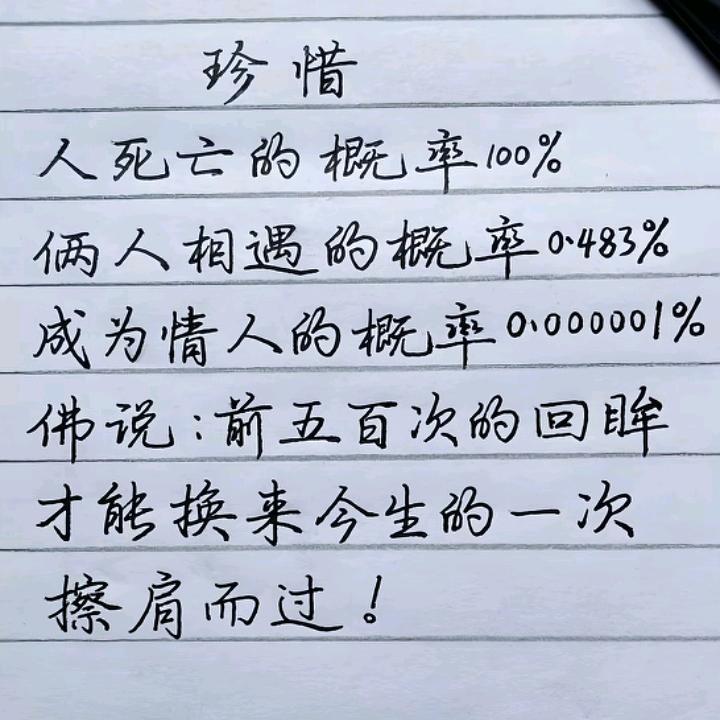 珍惜
人死亡的概率100%
俩人相遇的概率0.483%
成为情人的概率0.000001%
佛说:前五百次的回眸
才能换来今生的一次
擦肩而过!